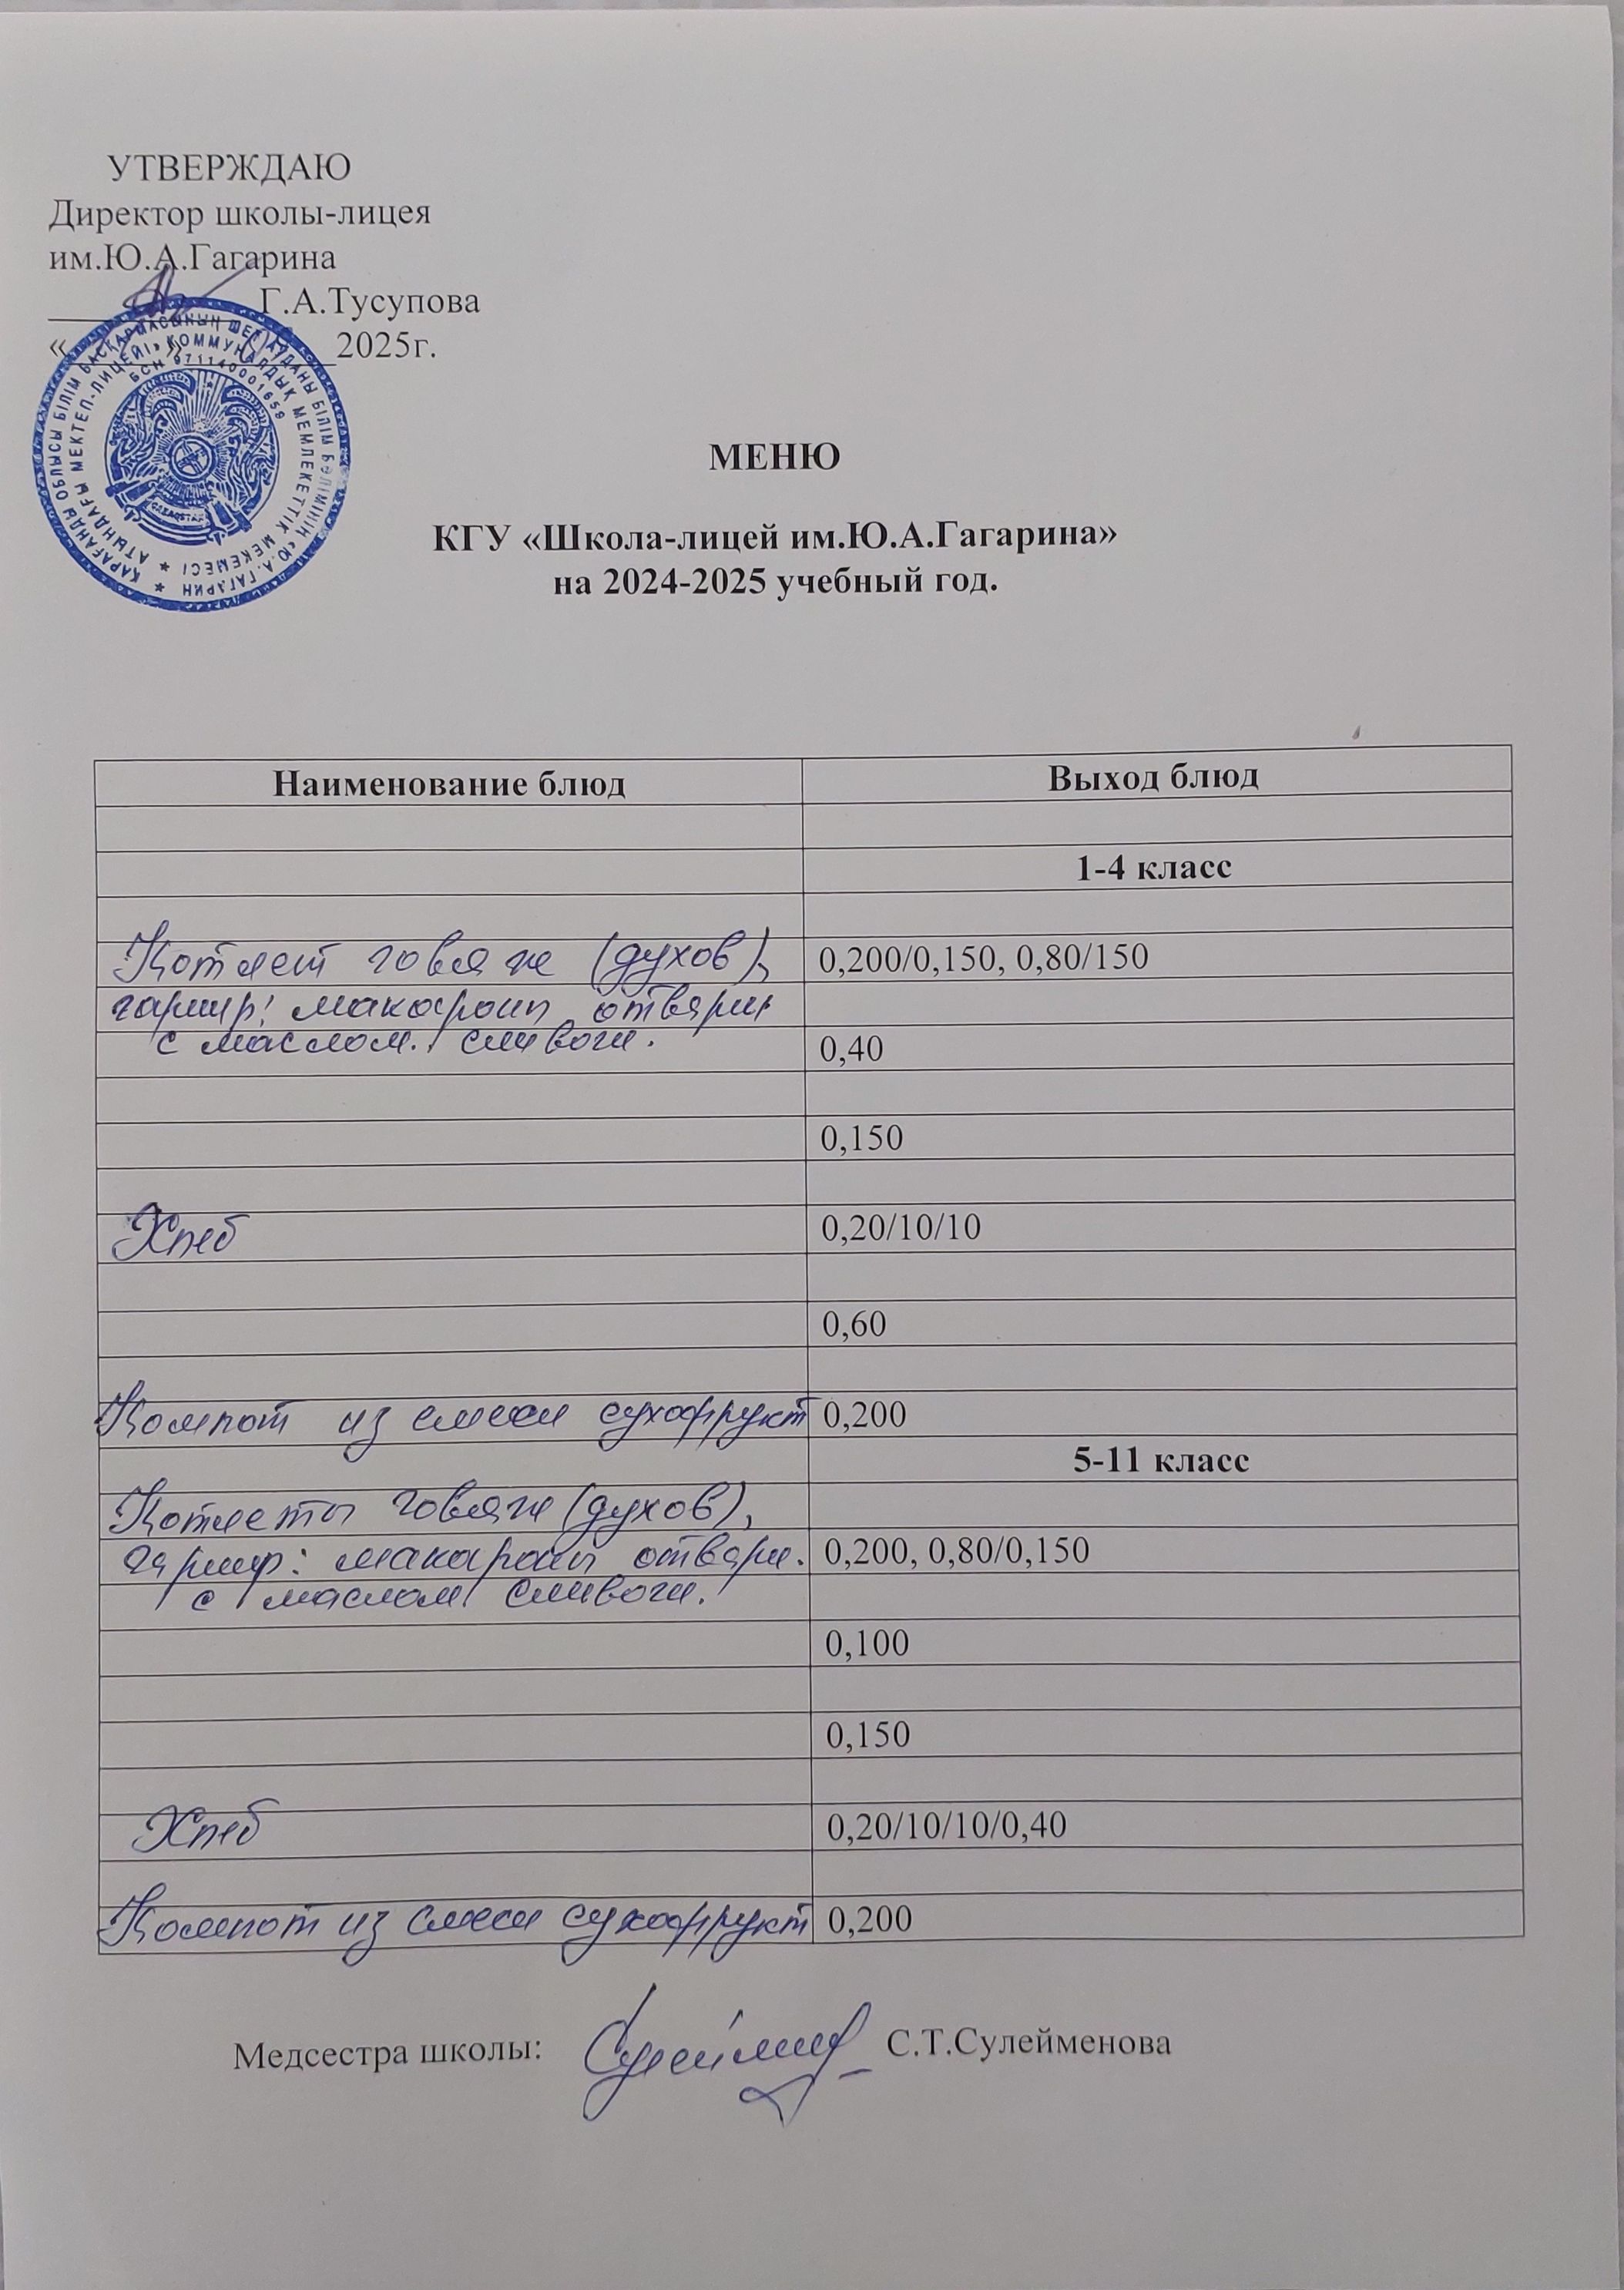 УТВЕРЖДАЮ
Директор школы-лицея
им.Ю.А.Гагарина
Г.А.Тусупова
« » 2025г.
КАРАҒАНДЫ ОБЛЫСЫ БІЛІМ БАСҚАРМАСЫНЫҢ ШЕТ АУДАНЫ БІЛІМ БӨЛІМІНІҢ «Ю.А.ГАГАРИН
АТЫНДАҒЫ МЕКТЕП-ЛИЦЕЙІ» КОММУНАЛДЫҚ МЕМЛЕКЕТТІК МЕКЕМЕСІ
БСН 971140001659
МЕНЮ
КГУ «Школа-лицей им.Ю.А.Гагарина»
на 2024-2025 учебный год.
Наименование блюд Выход блюд
1-4 класс
Котлет говяже (духов), 0,200/0,150, 0,80/150
гарнир: макароны отварн
с маслом. сливочн. 0,40
0,150
Хлеб 0,20/10/10
0,60
Компот из смеси сухофрукт 0,200
5-11 класс
Котлеты говяже (духов),
гарнир: макароны отварн. 0,200, 0,80/0,150
с маслом сливочн.
0,100
0,150
Хлеб 0,20/10/10/0,40
Компот из смеси сухофрукт 0,200
Медсестра школы: С.Т.Сулейменова